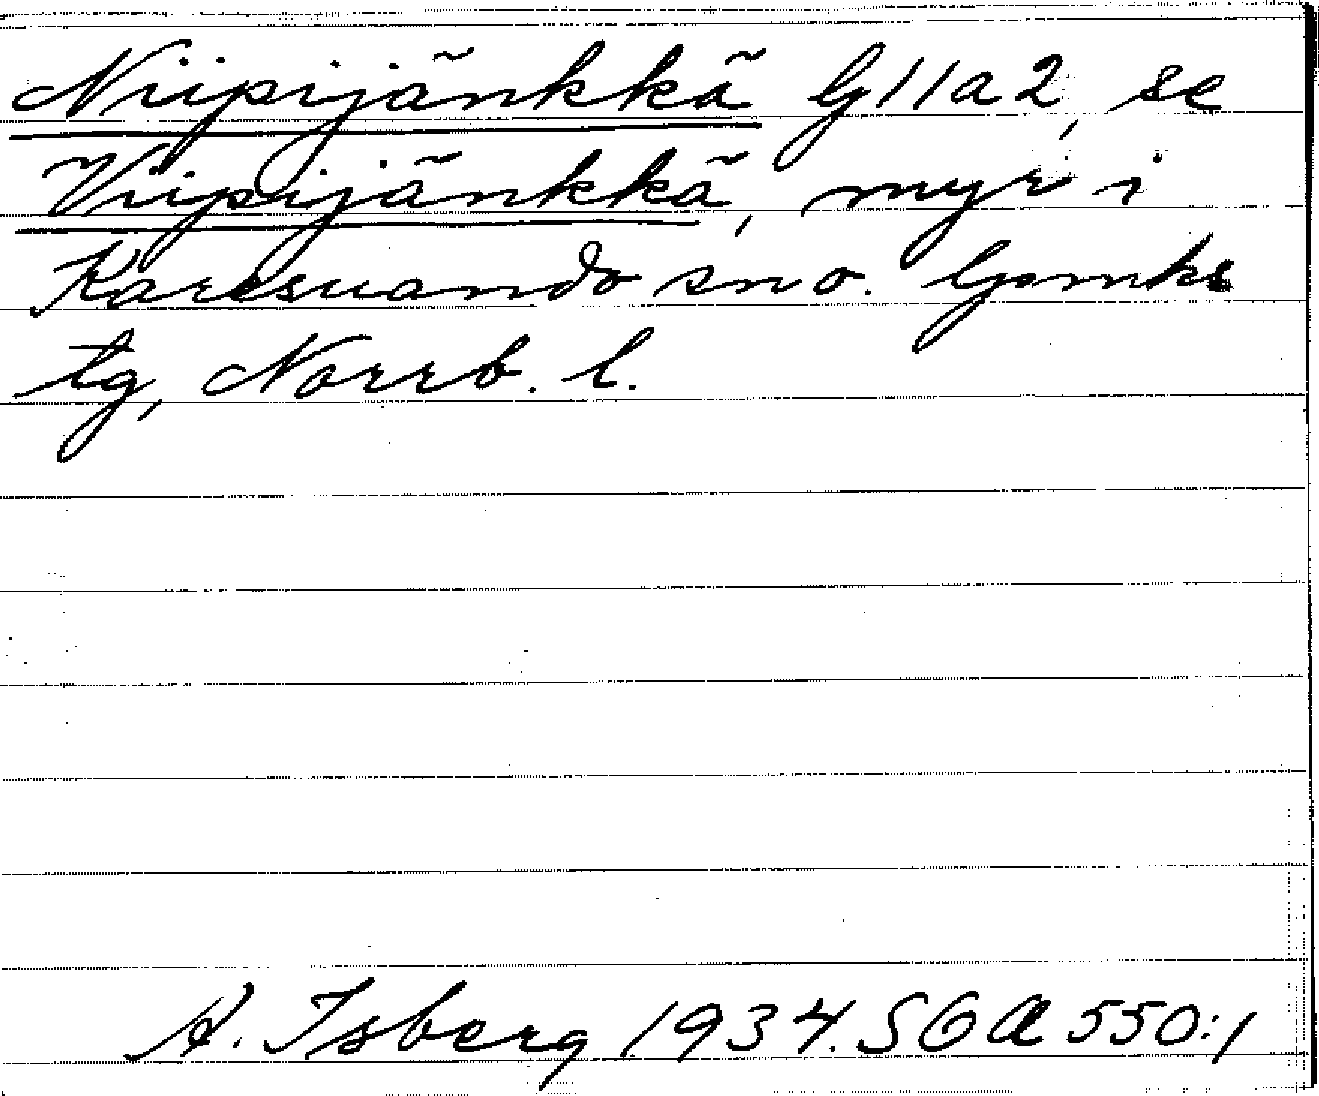 Niipijänkkä G11a2, se
Viipijänkkä, myr i
Karesuando sno. Gomks
tg, Norrb. l.
A. Isberg 1934. SOA 550:1